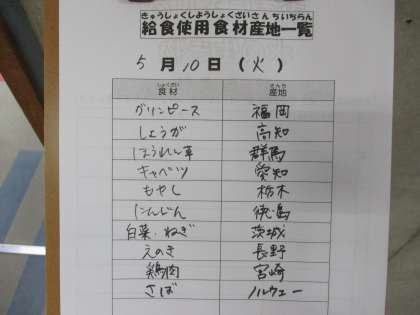 きゅうしょくしようしょくざいさんちいちらん
給食使用食材産地一覧
5月10日(火)
しょくざい さんち
食材 産地
グリンピース 福岡
しょうが 高知
ほうれん草 群馬
キャベツ 愛知
もやし 栃木
にんじん 徳島
白菜・ねぎ 茨城
えのき 長野
鶏肉 宮崎
さば ノルウェー